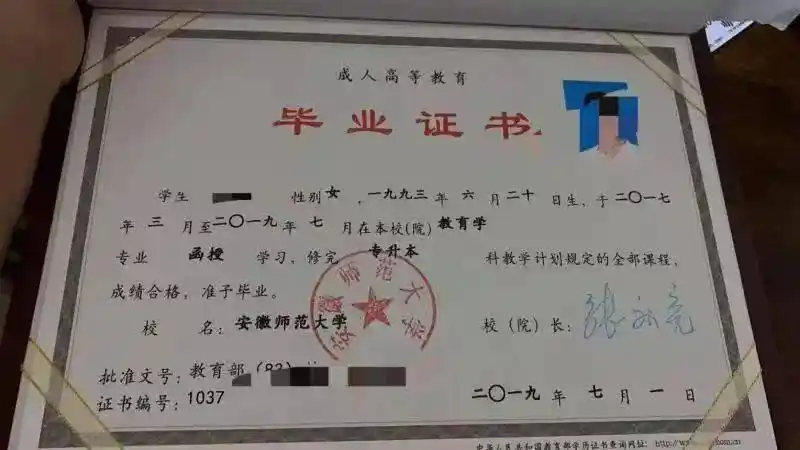 成人高等教育
毕业证书
学生 性别 女 ,一九九三年 六 月二十日生,于二〇一七
年 三 月至二〇一九年 七 月在本校(院)教育学
专业 函授 学习,修完 专升本 科教学计划规定的全部课程,
成绩合格,准予毕业。
校 名:安徽师范大学 校(院)长:
安徽师范大学
批准文号:教育部(83)
证书编号:1037
二〇一九年 七 月 一 日
中华人民共和国教育部学历证书查询网址: http://w .com.cn